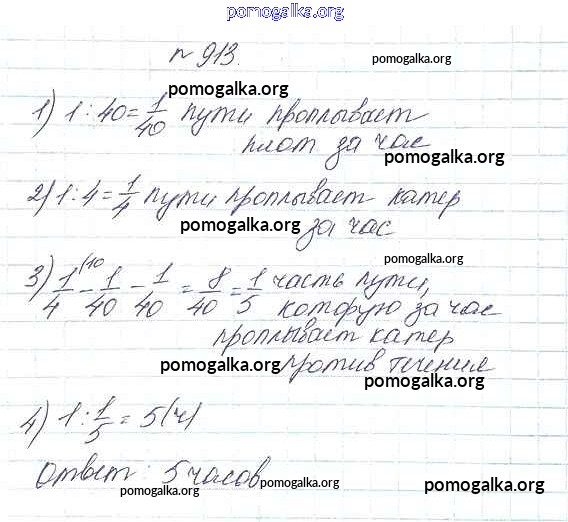 pomogalka.org
№ 913.
pomogalka.org
1) 1 : 40 = 1/40 пути проплывает
pomogalka.org
плот за час
pomogalka.org
2) 1 : 4 = 1/4 пути проплывает катер
pomogalka.org за час
pomogalka.org
3) 1/4 \10 - 1/40 - 1/40 = 8/40 = 1/5 часть пути,
которую за час
pomogalka.org
проплывает катер
pomogalka.org против течения
pomogalka.org
4) 1 : 1/5 = 5 (ч)
pomogalka.org
Ответ: 5 часов
pomogalka.org pomogalka.org pomogalka.org